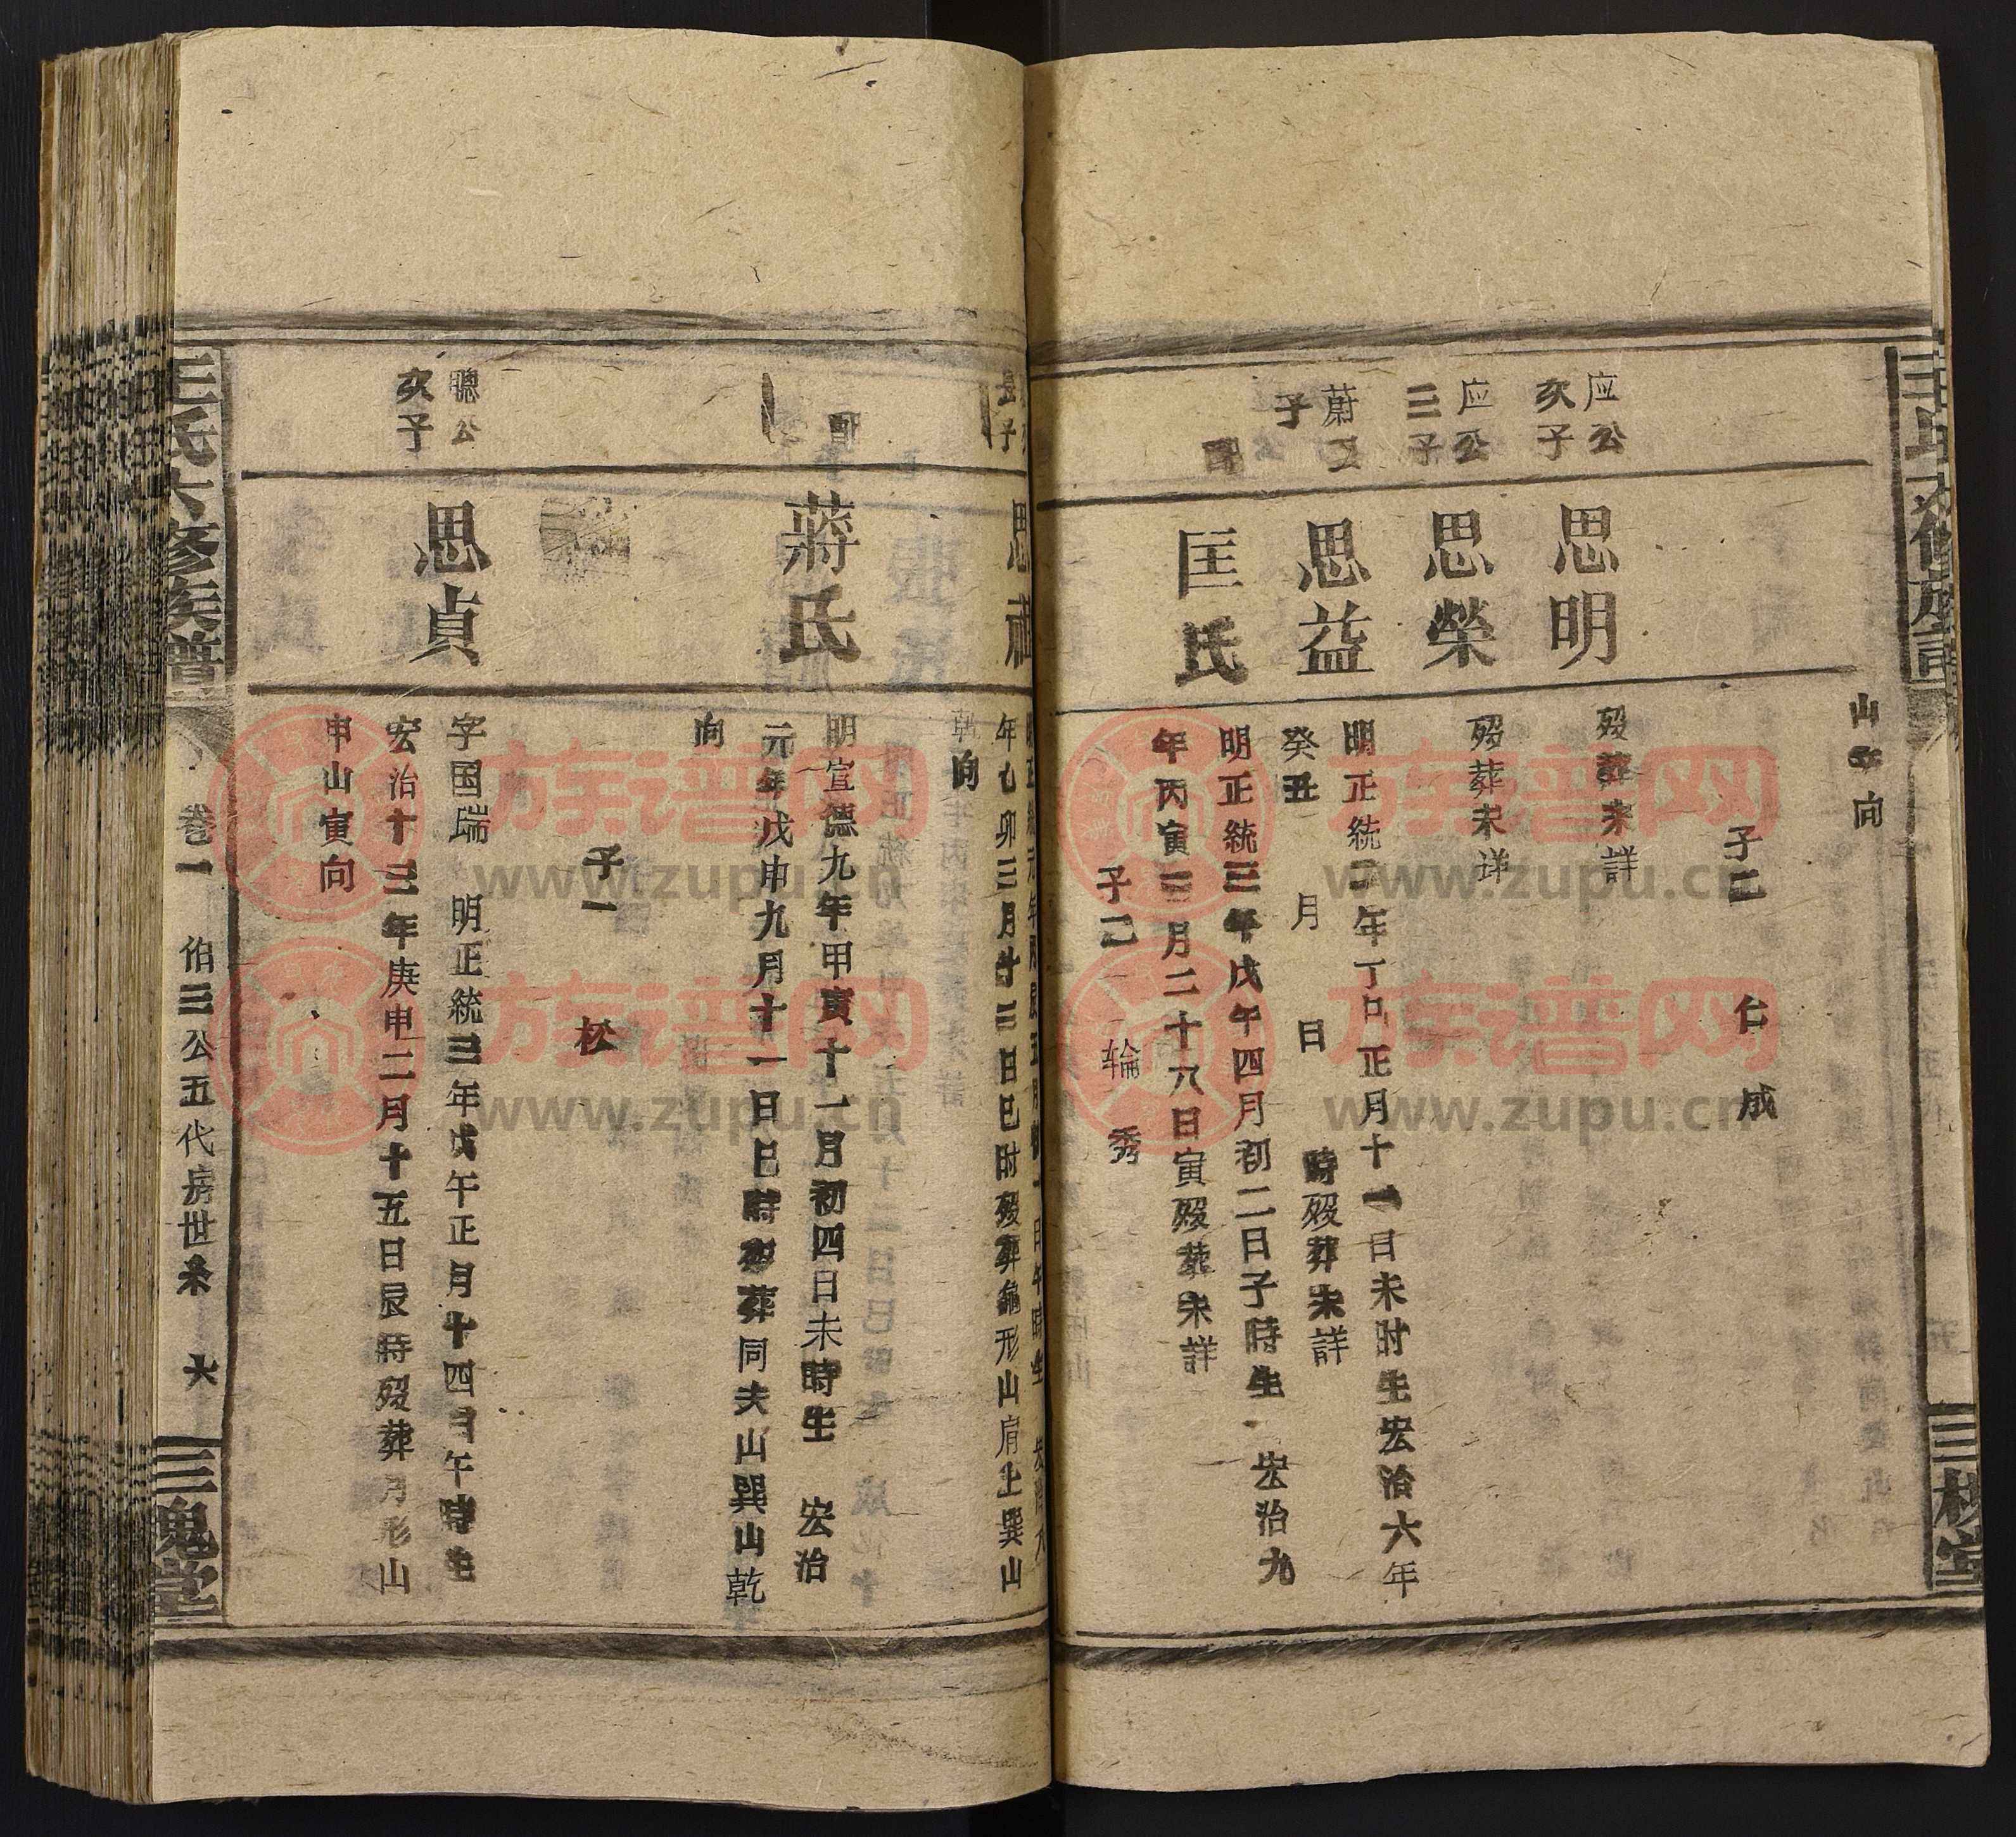 山午向
子二 仁 成
应公
次子
思明
殁葬未詳
应公
三子
思榮
殁葬未详
蔚公
子
思益
明正統二年丁巳正月十一日未时生宏治六年
癸丑 月 日 時殁葬未詳
配
匡氏
明正統三年戊午四月初二日子時生 宏治九
年丙寅三月二十八日寅殁葬未詳
子二 輪 秀
長子
思
年乙卯三月廿三日巳时殁葬龜形山肩上巽山
朝向
配
蔣氏
明宣德九年甲寅十一月初四日未時生 宏治
元年戊申九月十一日巳時殁葬同夫山巽山乾
向
子一 松
聰公
次子
思貞
字国瑞 明正統三年戊午正月十四日午時生
宏治十三年庚申二月十五日辰時殁葬月形山
申山寅向
王氏六修族譜
卷一 伯三公五代房世系 六
三槐堂
族谱网
www.zupu.cn
族谱网
www.zupu.cn
族谱网
www.zupu.cn
族谱网
www.zupu.cn